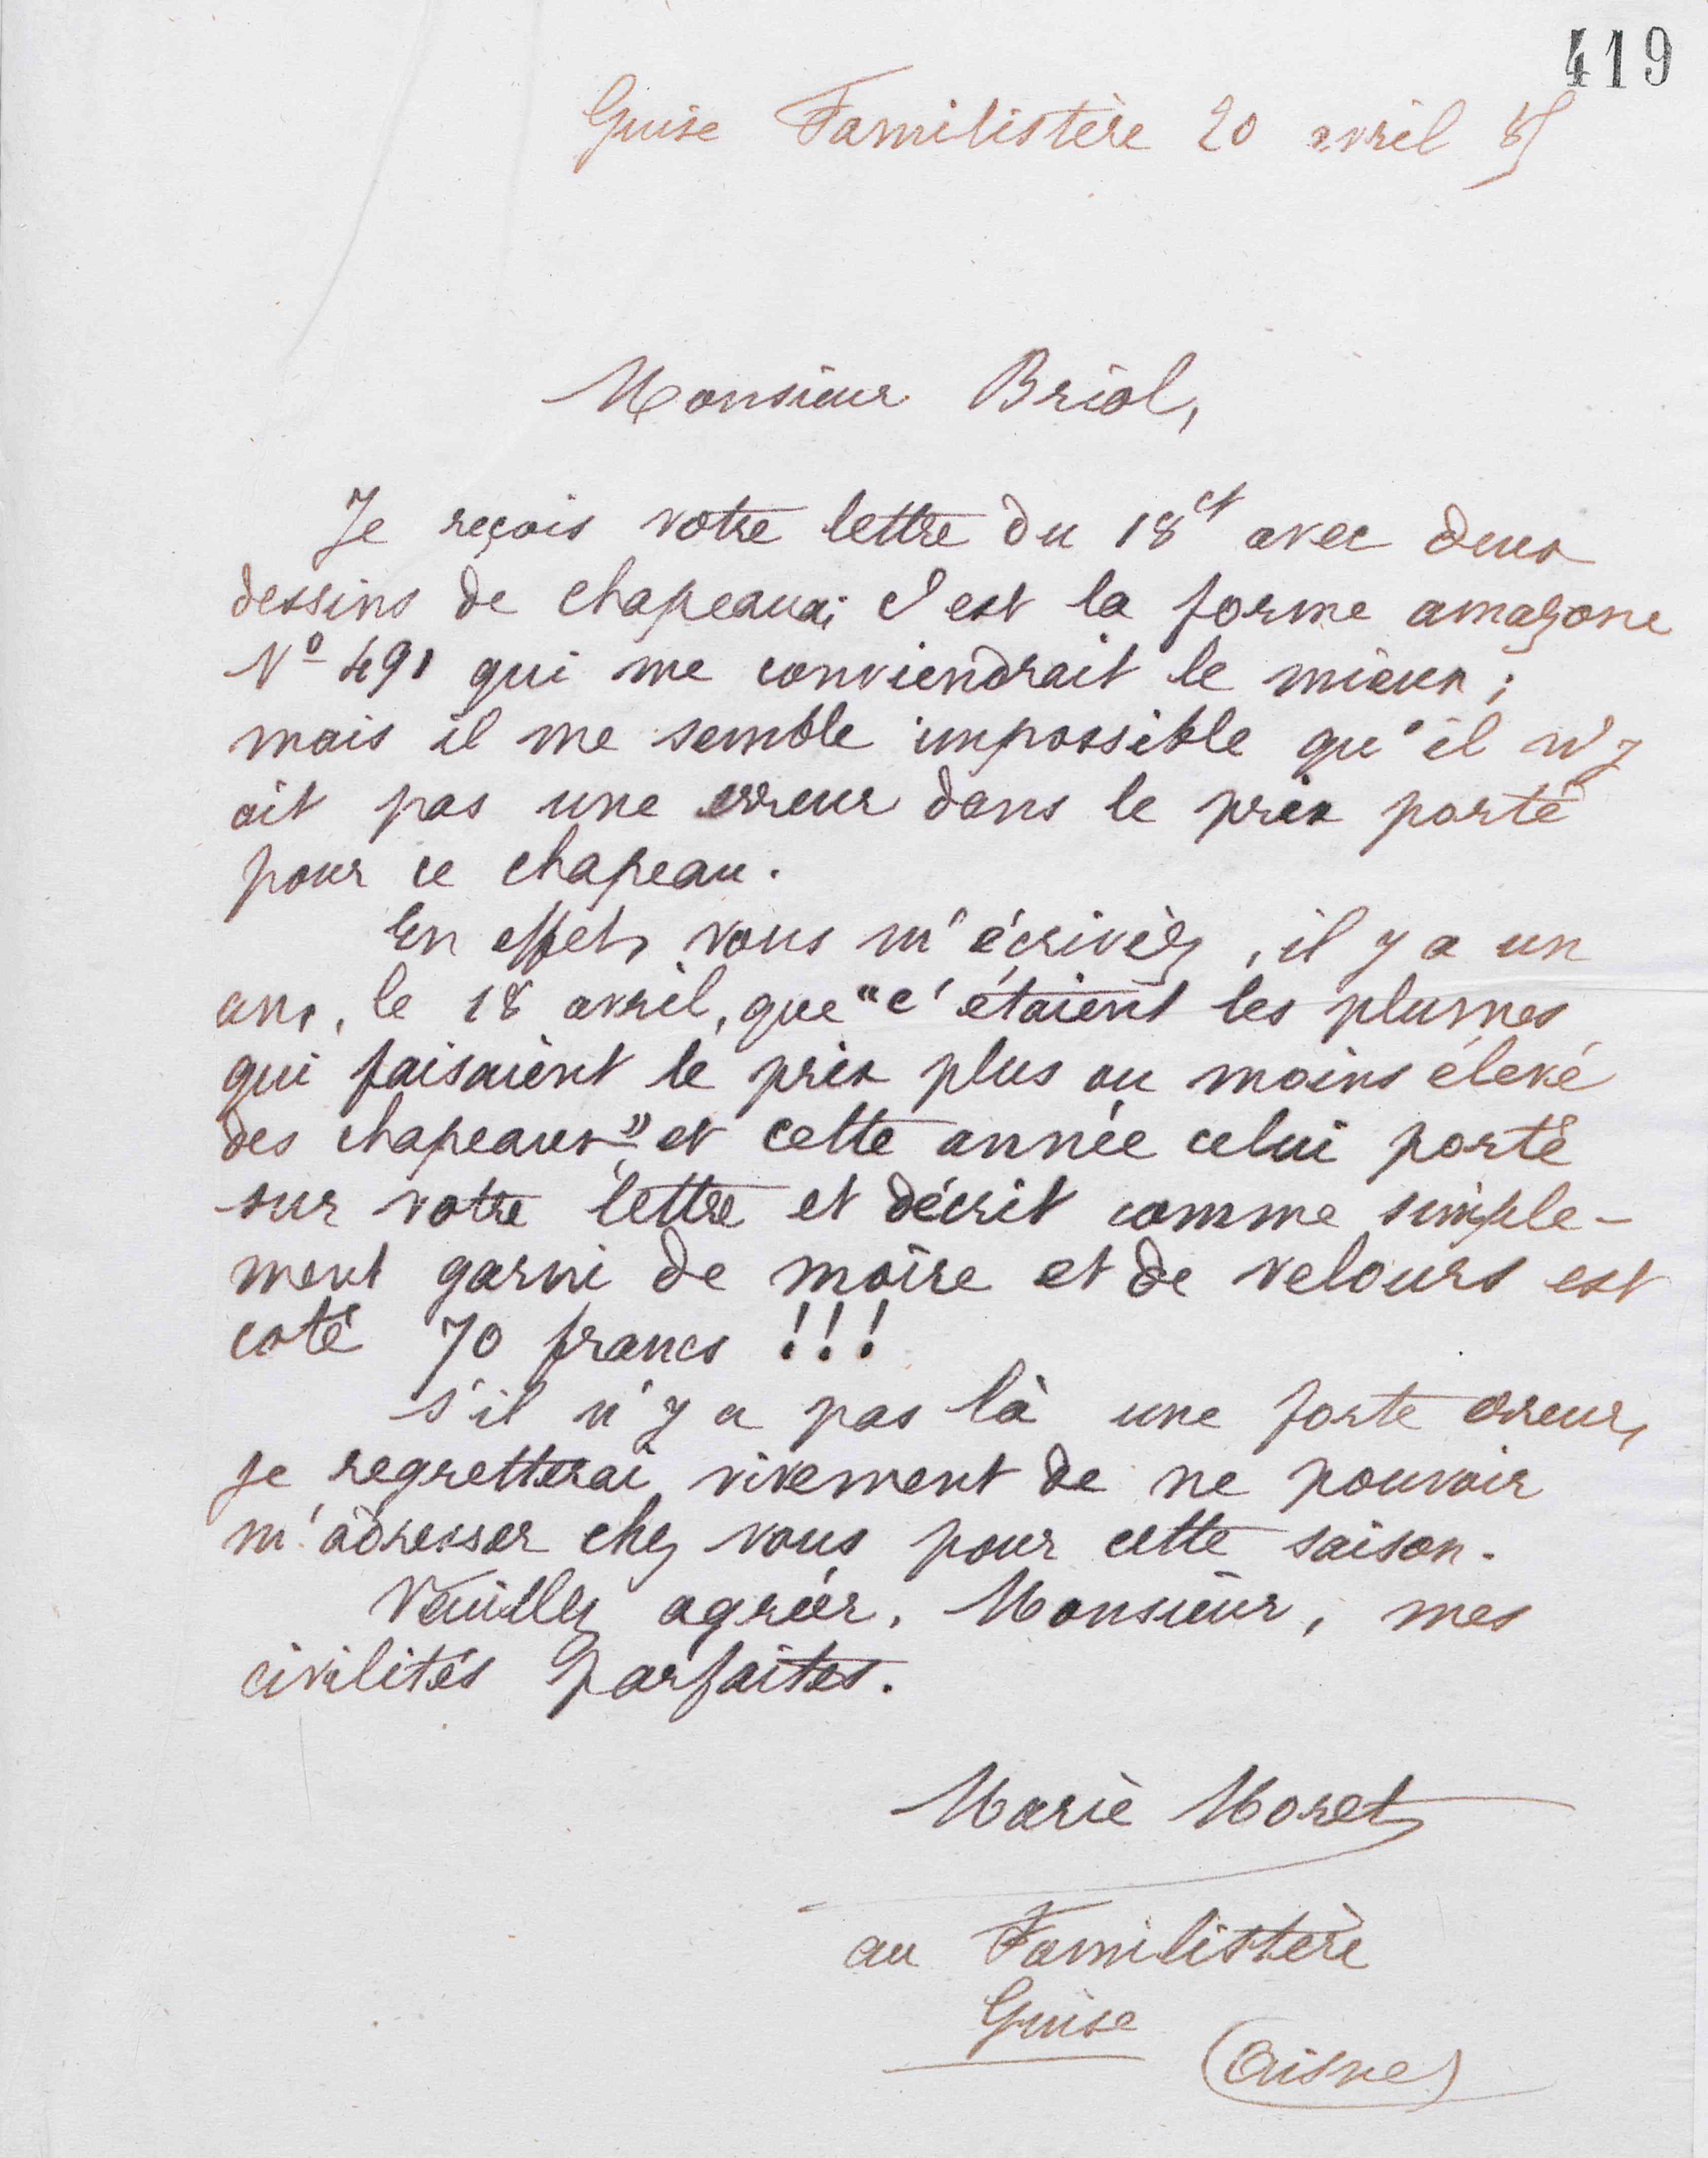 419
Guise Familistère 20 avril 85
Monsieur Briol,
Je reçois votre lettre du 18 ct avec deux
dessins de chapeaux; c'est la forme amazone
N° 491 qui me conviendrait le mieux ;
mais il me semble impossible qu'il n'y
ait pas une erreur dans le prix porté
pour ce chapeau.
En effet, vous m'écriviez, il y a un
an, le 18 avril, que "c'étaient les plumes
qui faisaient le prix plus ou moins élevé
des chapeaux" et cette année celui porté
sur votre lettre et décrit comme simple-
ment garni de moire et de velours est
coté 70 francs !!!
S'il n'y a pas là une forte erreur,
je regretterai vivement de ne pouvoir
m'adresser chez vous pour cette saison.
Veuillez agréer, Monsieur, mes
civilités parfaites.
Marie Moret
au Familistère
Guise
(Aisne)